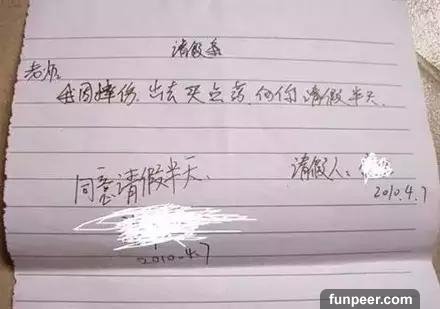 请假条
老师:
我因摔伤,出去买点药,向你请假半天.
请假人:
2010.4.7
同意请假半天.
2010.4.7
funpeer.com